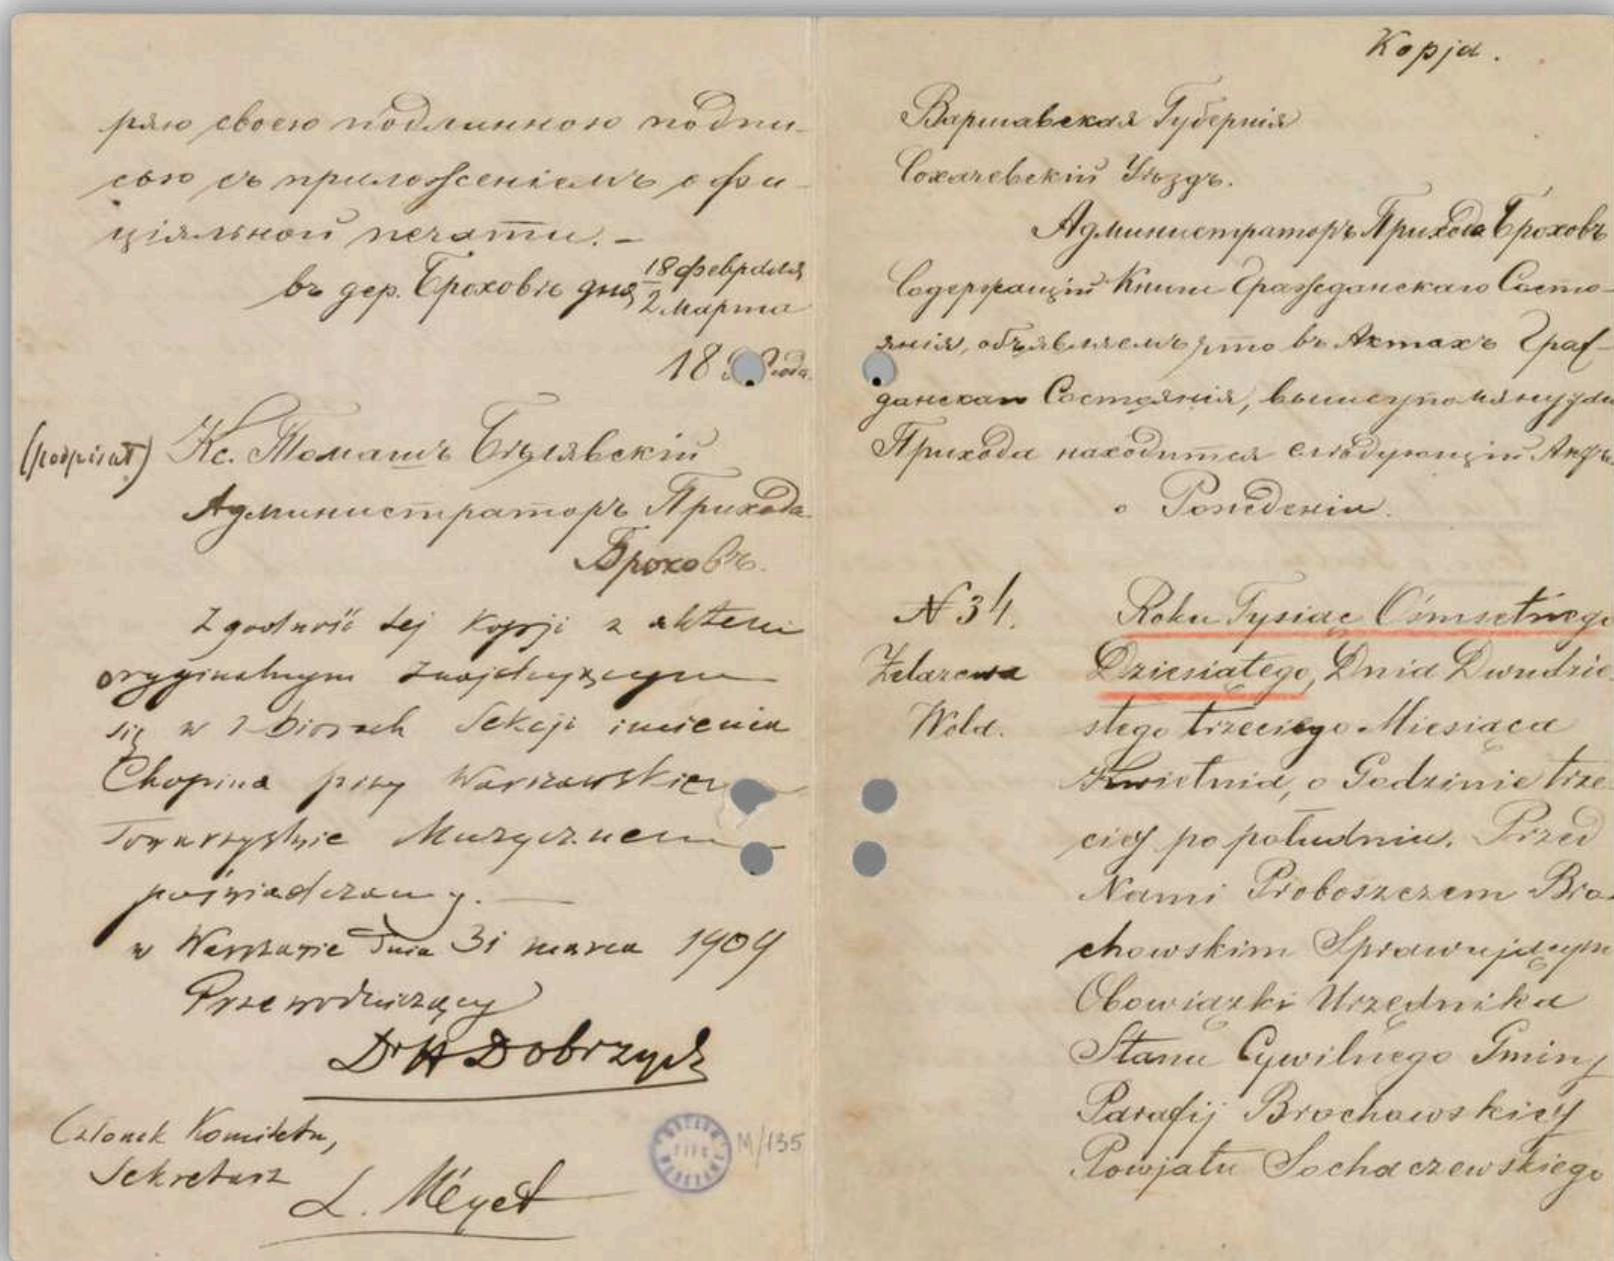 ряю своею подлинною подпи-
сью съ приложеніемъ офи-
ціяльной печати. –
въ дер. Броховѣ дня 18 февраля
2 марта
18 года
(podpisał) Кс. Томашъ Бѣлявскій
Администраторъ Прихода
Броховъ.
Zgodność tej Kopji z aktem
oryginalnym znajdującym
się w zbiorach Sekcji imienia
Chopina przy Warszawskiem
Towarzystwie Muzycznem
poświadczamy. —
w Warszawie dnia 31 marca 1909
Przewodniczący
Dr H Dobrzyck
Członek Komitetu,
Sekretarz
L. Méyet
M/135
Kopja.
Варшавская Губернія
Сохачевскій Уѣздъ.
Администраторъ Прихода Броховъ
Содержащій Книги Гражданскаго Состо-
янія, объявляемъ что въ Актахъ Граж-
данскаго Состоянія, вышеупомянутаго
Прихода находится слѣдующій Актъ
о Рожденіи.
N 34.
Żelazowa
Wola.
Roku Tysiąc Ośmsetnego
Dziesiątego, Dnia Dwudzie-
stego trzeciego Miesiąca
Kwietnia, o Godzinie trze-
ciey po południu. Przed
Nami Proboszczem Bro-
chowskim Sprawującym
Obowiązki Urzędnika
Stanu Cywilnego Gminy
Parafij Brochowskiey
Powjatu Sochaczewskiego